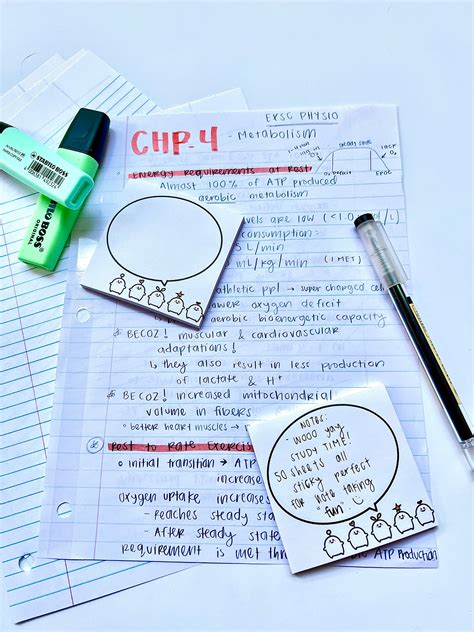 EXSC PHYSIO
CHP. 4 - Metabolism
steady state
O₂ deficit
EPOC
Energy requirements at Rest
Almost 100% of ATP produced
aerobic metabolism
levels are low (<1.0 mmol/L)
consumption:
5 L/min
mL/kg/min (1 MET)
athletic ppl → super charged
lower oxygen deficit
aerobic bioenergetic capacity
BECOZ! muscular & cardiovascular
adaptations!
↳ they also result in less production
of lactate & H⁺
BECOZ! increased mitochondrial
volume in fibers
better heart muscles →
Rest to Rate Exercise
initial transition → ATP
increase
oxygen uptake increases
- Reaches steady state
- After steady state
requirement is met ATP Production
STABILO BOSS
STABILO BOSS
ORIGINAL
NOTES:
- WOOO yay
STUDY TIME!
SO SHEETS all
sticky perfect
for note taking
"fun"